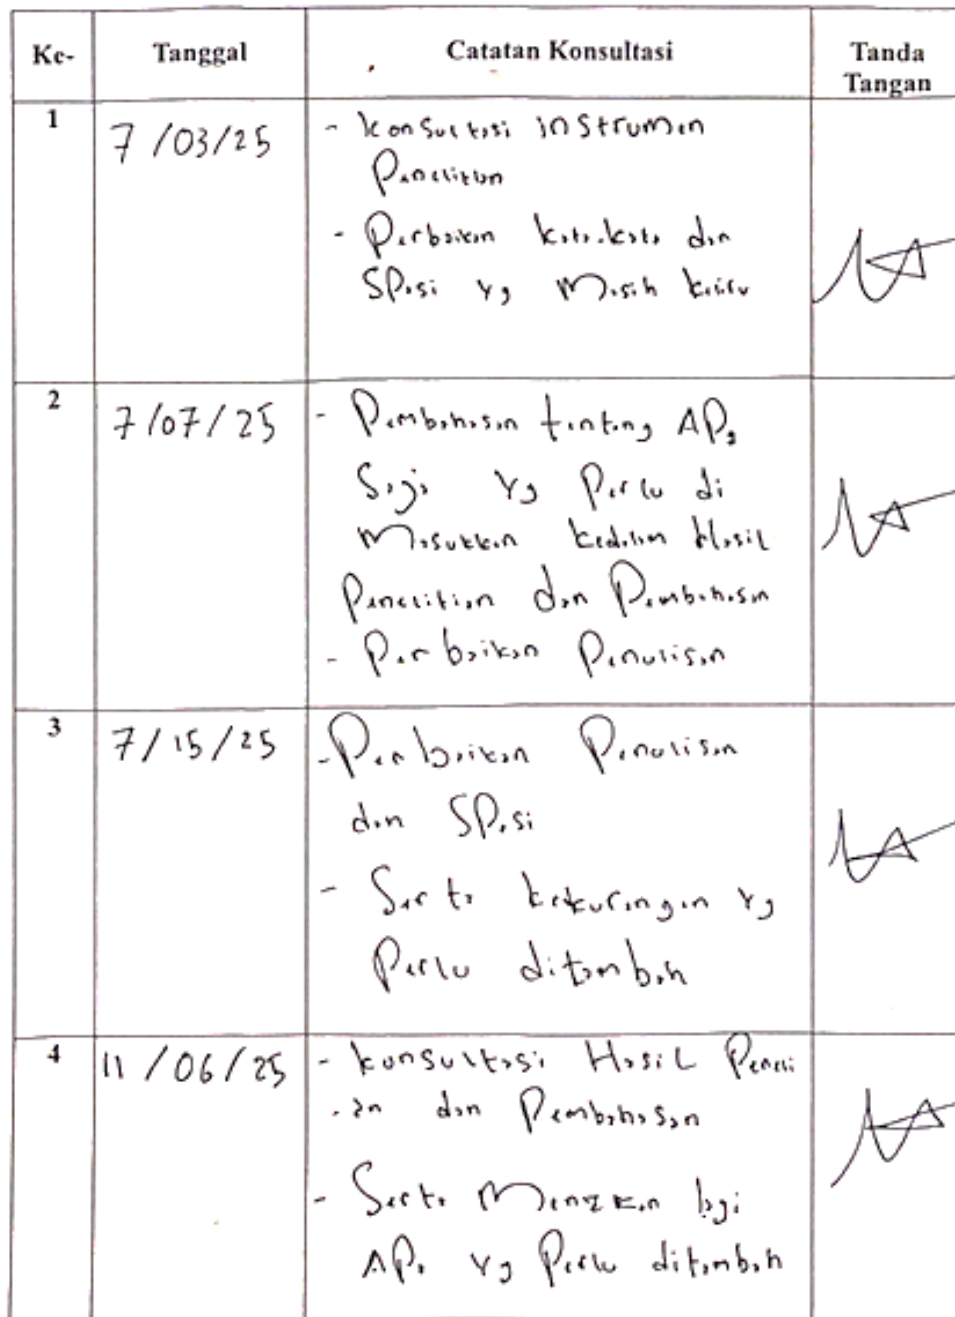 Ke- Tanggal Catatan Konsultasi Tanda Tangan
1 7/03/25 - Konsultasi instrumen
Penelitian
- Perbaikan kata-kata dan
Spasi yg Masih keliru
2 7/07/25 - Pembahasan tentang APa
Saja yg Perlu di
Masukkan kedalam Hasil
Penelitian dan Pembahasan
- Perbaikan Penulisan
3 7/15/25 - Perbaikan Penulisan
dan SPasi
- Serta kekurangan yg
Perlu ditambah
4 11/06/25 - konsultasi Hasil Peneli
.an dan Pembahasan
- Serta lagi
APa yg Perlu ditambah